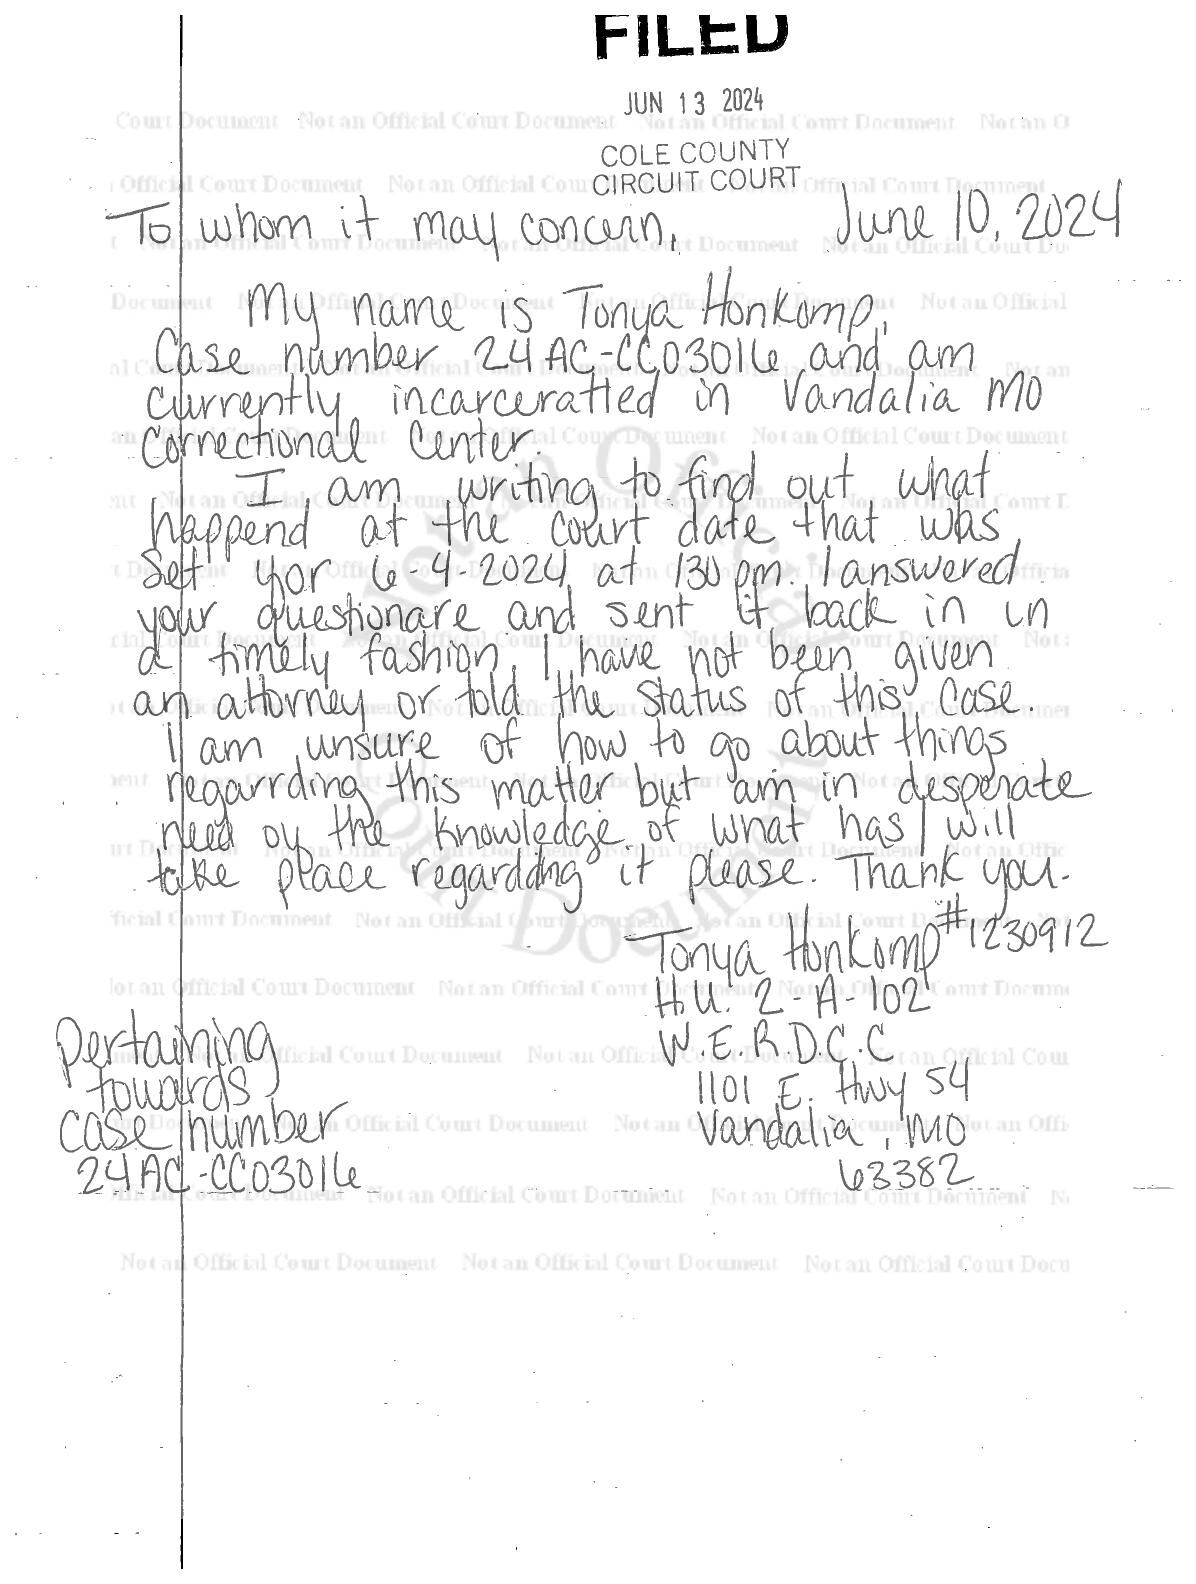 FILED
JUN 13 2024
COLE COUNTY
CIRCUIT COURT
To whom it may concern, June 10, 2024
My name is Tonya Honkomp,
Case number 24AC-CC03016 and am
currently incarceratted in Vandalia MO
Correctional Center.
I am writing to find out what
happend at the court date that was
set for 6-4-2024 at 130pm. I answered
your questionare and sent it back in in
a timely fashion. I have not been given
an attorney or told the status of this case.
I am unsure of how to go about things
regarrding this matter but am in desperate
need oy the knowledge of what has/will
take place regardding it please. Thank you-
Tonya Honkomp #1230912
H.U. 2-A-102
W.E.R.D.C.C
1101 E. Hwy 54
Vandalia, MO
63382
Pertaining
towards
case number
24AC-CC03016
Not an Official Court Document